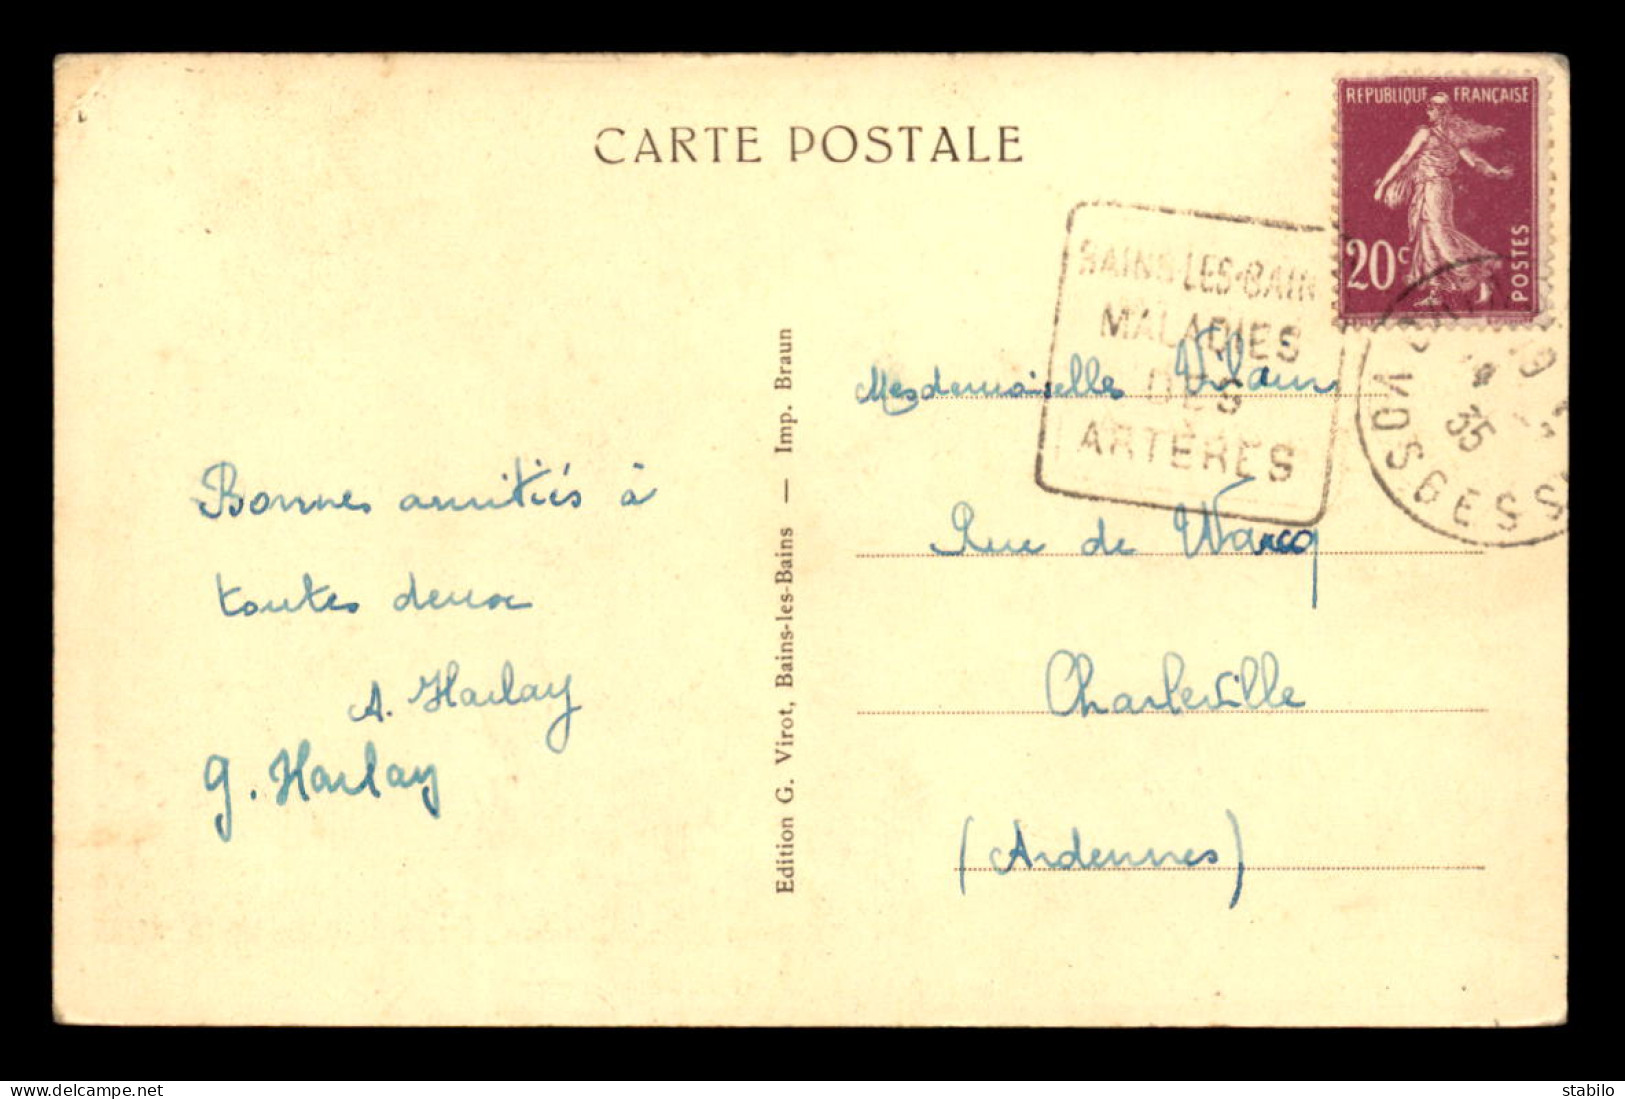 CARTE POSTALE
REPUBLIQUE FRANÇAISE
20c
POSTES
BAINS-LES-BAIN
MALADIES
DES
ARTÈRES
35
VOSGES
Bonnes amitiés à
toutes deux
A. Harlay
G. Harlay
Edition G. Virot, Bains-les-Bains — Imp. Braun
Mesdemoiselles Vilain
Rue de Warcq
Charleville
(Ardennes)
delcampe.net
stabilo